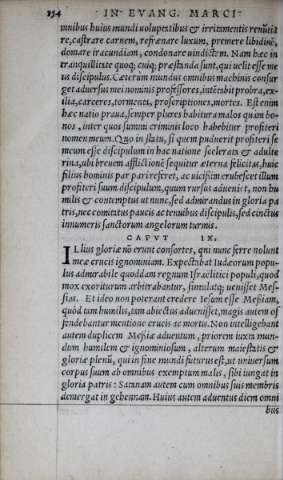 254 IN EVANG. MARCI
mnibus huius mundi uoluptatibus & irritamentis renũtia
re, castrare carnem, refrænare luxum, premere libidinē,
domare iracundiam, condonare uindictam. Nam hæc in
tranquillitate quoq; cuiq; præstanda sunt, qui uelit esse me
us discipulus. Cæterum mundus omnibus machinis consur
get aduersus mei nominis professores, intētabit probra, ex-
ilia, carceres, tormenta, proscriptiones, mortes. Est enim
hæc natio praua, semper plures habitura malos quàm bo-
nos, inter quos summi criminis loco habebitur profiteri
nomen meum. Quo in statu, si quem puduerit profiteri se
meum esse discipulum in hac natione scelerata & adulte
rina, ubi breuem afflictionē sequitur æterna felicitas, huic
filius hominis par pari referet, ac uicißim erubescet illum
profiteri suum discipulum, quum rursus aduenerit, non hu
milis & contemptus ut nunc, sed admirandus in gloria pa
tris, nec comitatus paucis ac tenuibus discipulis, sed cinctus
innumeris sanctorum angelorum turmis.
CAPVT IX.
ILlius gloriæ nō erunt consortes, qui nunc ferre nolunt
meæ crucis ignominiam. Expectabat Iudæorum popu-
lus admirabile quoddam regnum Israelitici populi, quod
mox exoriturum arbitrabantur, simulatq; uenisset Mes-
sias. Et ideo non poterant credere Iesum esse Meßiam,
quòd tam humilis, tam abiectus aduenisset, magis autem of
fendebantur mentione crucis ac mortis. Non intelligebant
autem duplicem Meßiæ aduentum, priorem iuxta mun-
dum humilem & ignominiosum, alterum maiestatis &
gloriæ plenũ, qui in fine mundi futurus est, ut uniuersum
corpus suum ab omnibus exemptum malis, sibi iungat in
gloria patris: Satanam autem cum omnibus suis membris
demergat in gehennam. Huius autem aduentus diem omni
bus